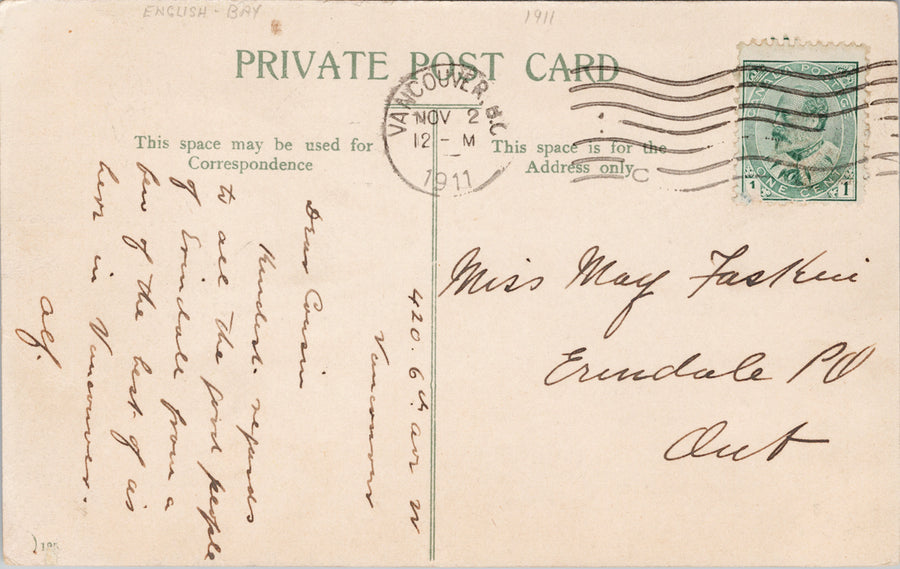 ENGLISH - BAY
1911
PRIVATE POST CARD
VANCOUVER, B.C.
NOV 2
12 - M
1911
CANADA POSTAGE
ONE CENT
1 1
This space may be used for
Correspondence
This space is for the
Address only
C
420. 6th. ave W
Vancouver
Dear Cousin
Kindest regards
to all the good people
of Erindale from a
few of the best of us
here in Vancouver.
Alf.
Miss May
Erindale PO
Ont